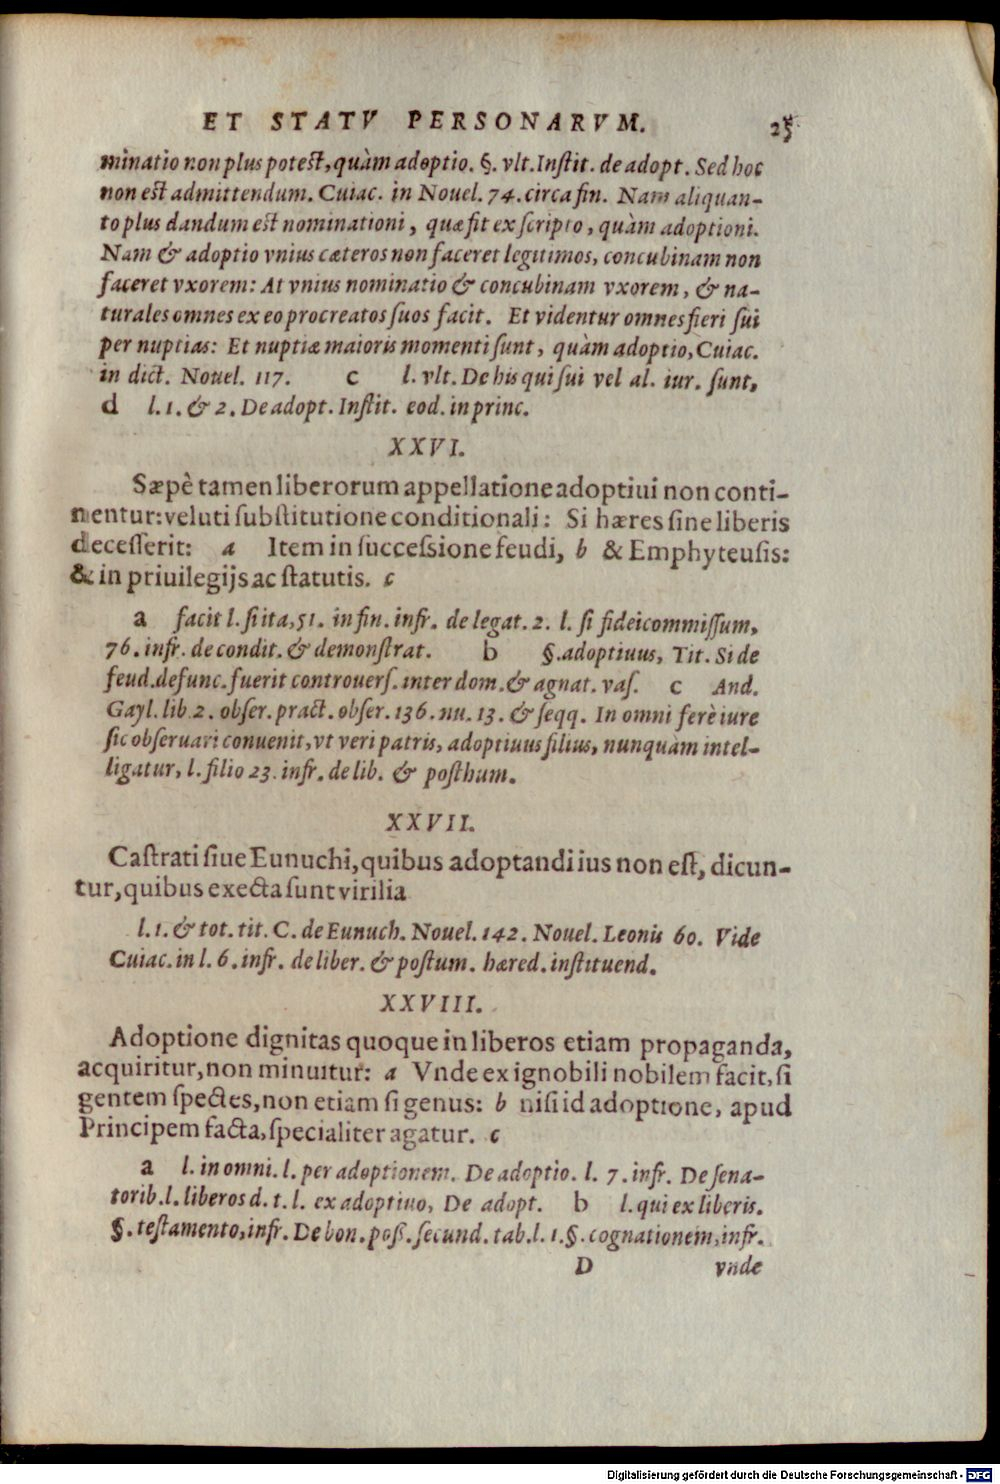 ET STATV PERSONARVM. 25
minatio non plus potest, quàm adoptio. §. vlt. Instit. de adopt. Sed hoc
non est admittendum. Cuiac. in Nouel. 74. circa fin. Nam aliquan-
to plus dandum est nominationi, quæ fit ex scripto, quàm adoptioni.
Nam & adoptio vnius cæteros non faceret legitimos, concubinam non
faceret vxorem: At vnius nominatio & concubinam vxorem, & na-
turales omnes ex eo procreatos suos facit. Et videntur omnes fieri sui
per nuptias: Et nuptiæ maioris momenti sunt, quàm adoptio, Cuiac.
in dict. Nouel. 117. c l. vlt. De his qui sui vel al. iur. sunt,
d l. 1. & 2. De adopt. Instit. eod. in princ.
XXVI.
Sæpè tamen liberorum appellatione adoptiui non conti-
nentur: veluti substitutione conditionali: Si hæres sine liberis
decesserit: a Item in successione feudi, b & Emphyteusis:
& in priuilegijs ac statutis. c
a facit l. si ita, 51. in fin. infr. de legat. 2. l. si fideicommissum,
76. infr. de condit. & demonstrat. b §. adoptiuus, Tit. Si de
feud. defunc. fuerit controuers. inter dom. & agnat. vas. c And.
Gayl. lib. 2. obser. pract. obser. 136. nu. 13. & seqq. In omni ferè iure
sic obseruari conuenit, vt veri patris, adoptiuus filius, nunquàm intel-
ligatur, l. filio 23. infr. de lib. & posthum.
XXVII.
Castrati siue Eunuchi, quibus adoptandi ius non est, dicun-
tur, quibus execta sunt virilia
l. 1. & tot. tit. C. de Eunuch. Nouel. 142. Nouel. Leonis 60. Vide
Cuiac. in l. 6. infr. de liber. & postum. hæred. instituend.
XXVIII.
Adoptione dignitas quoque in liberos etiam propaganda,
acquiritur, non minuitur: a Vnde ex ignobili nobilem facit, si
gentem spectes, non etiam si genus: b nisi id adoptione, apud
Principem facta, specialiter agatur. c
a l. in omni. l. per adoptionem. De adoptio. l. 7. infr. De sena-
torib. l. liberos d. t. l. ex adoptiuo, De adopt. b l. qui ex liberis.
§. testamento, infr. De bon. poss. secund. tab. l. 1. §. cognationem, infr.
D vnde
Digitalisierung gefördert durch die Deutsche Forschungsgemeinschaft - DFG